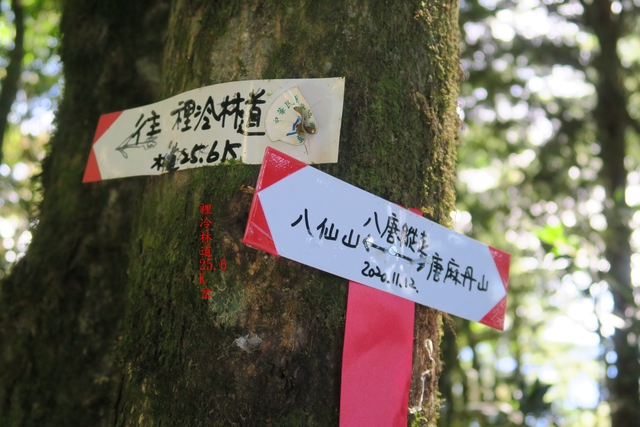 往 裡冷林道
25.6K
八唐縱走
八仙山 唐麻丹山
2020.11.12.
裡冷林道25.6K岔